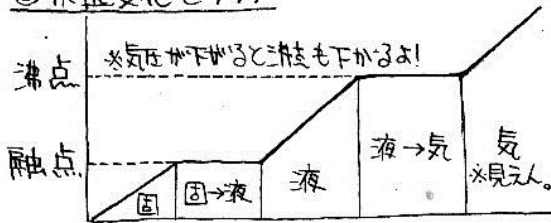 ※気圧が下がると沸点も下がるよ!
沸点
融点
固
固→液
液
液→気
気
※見えん。